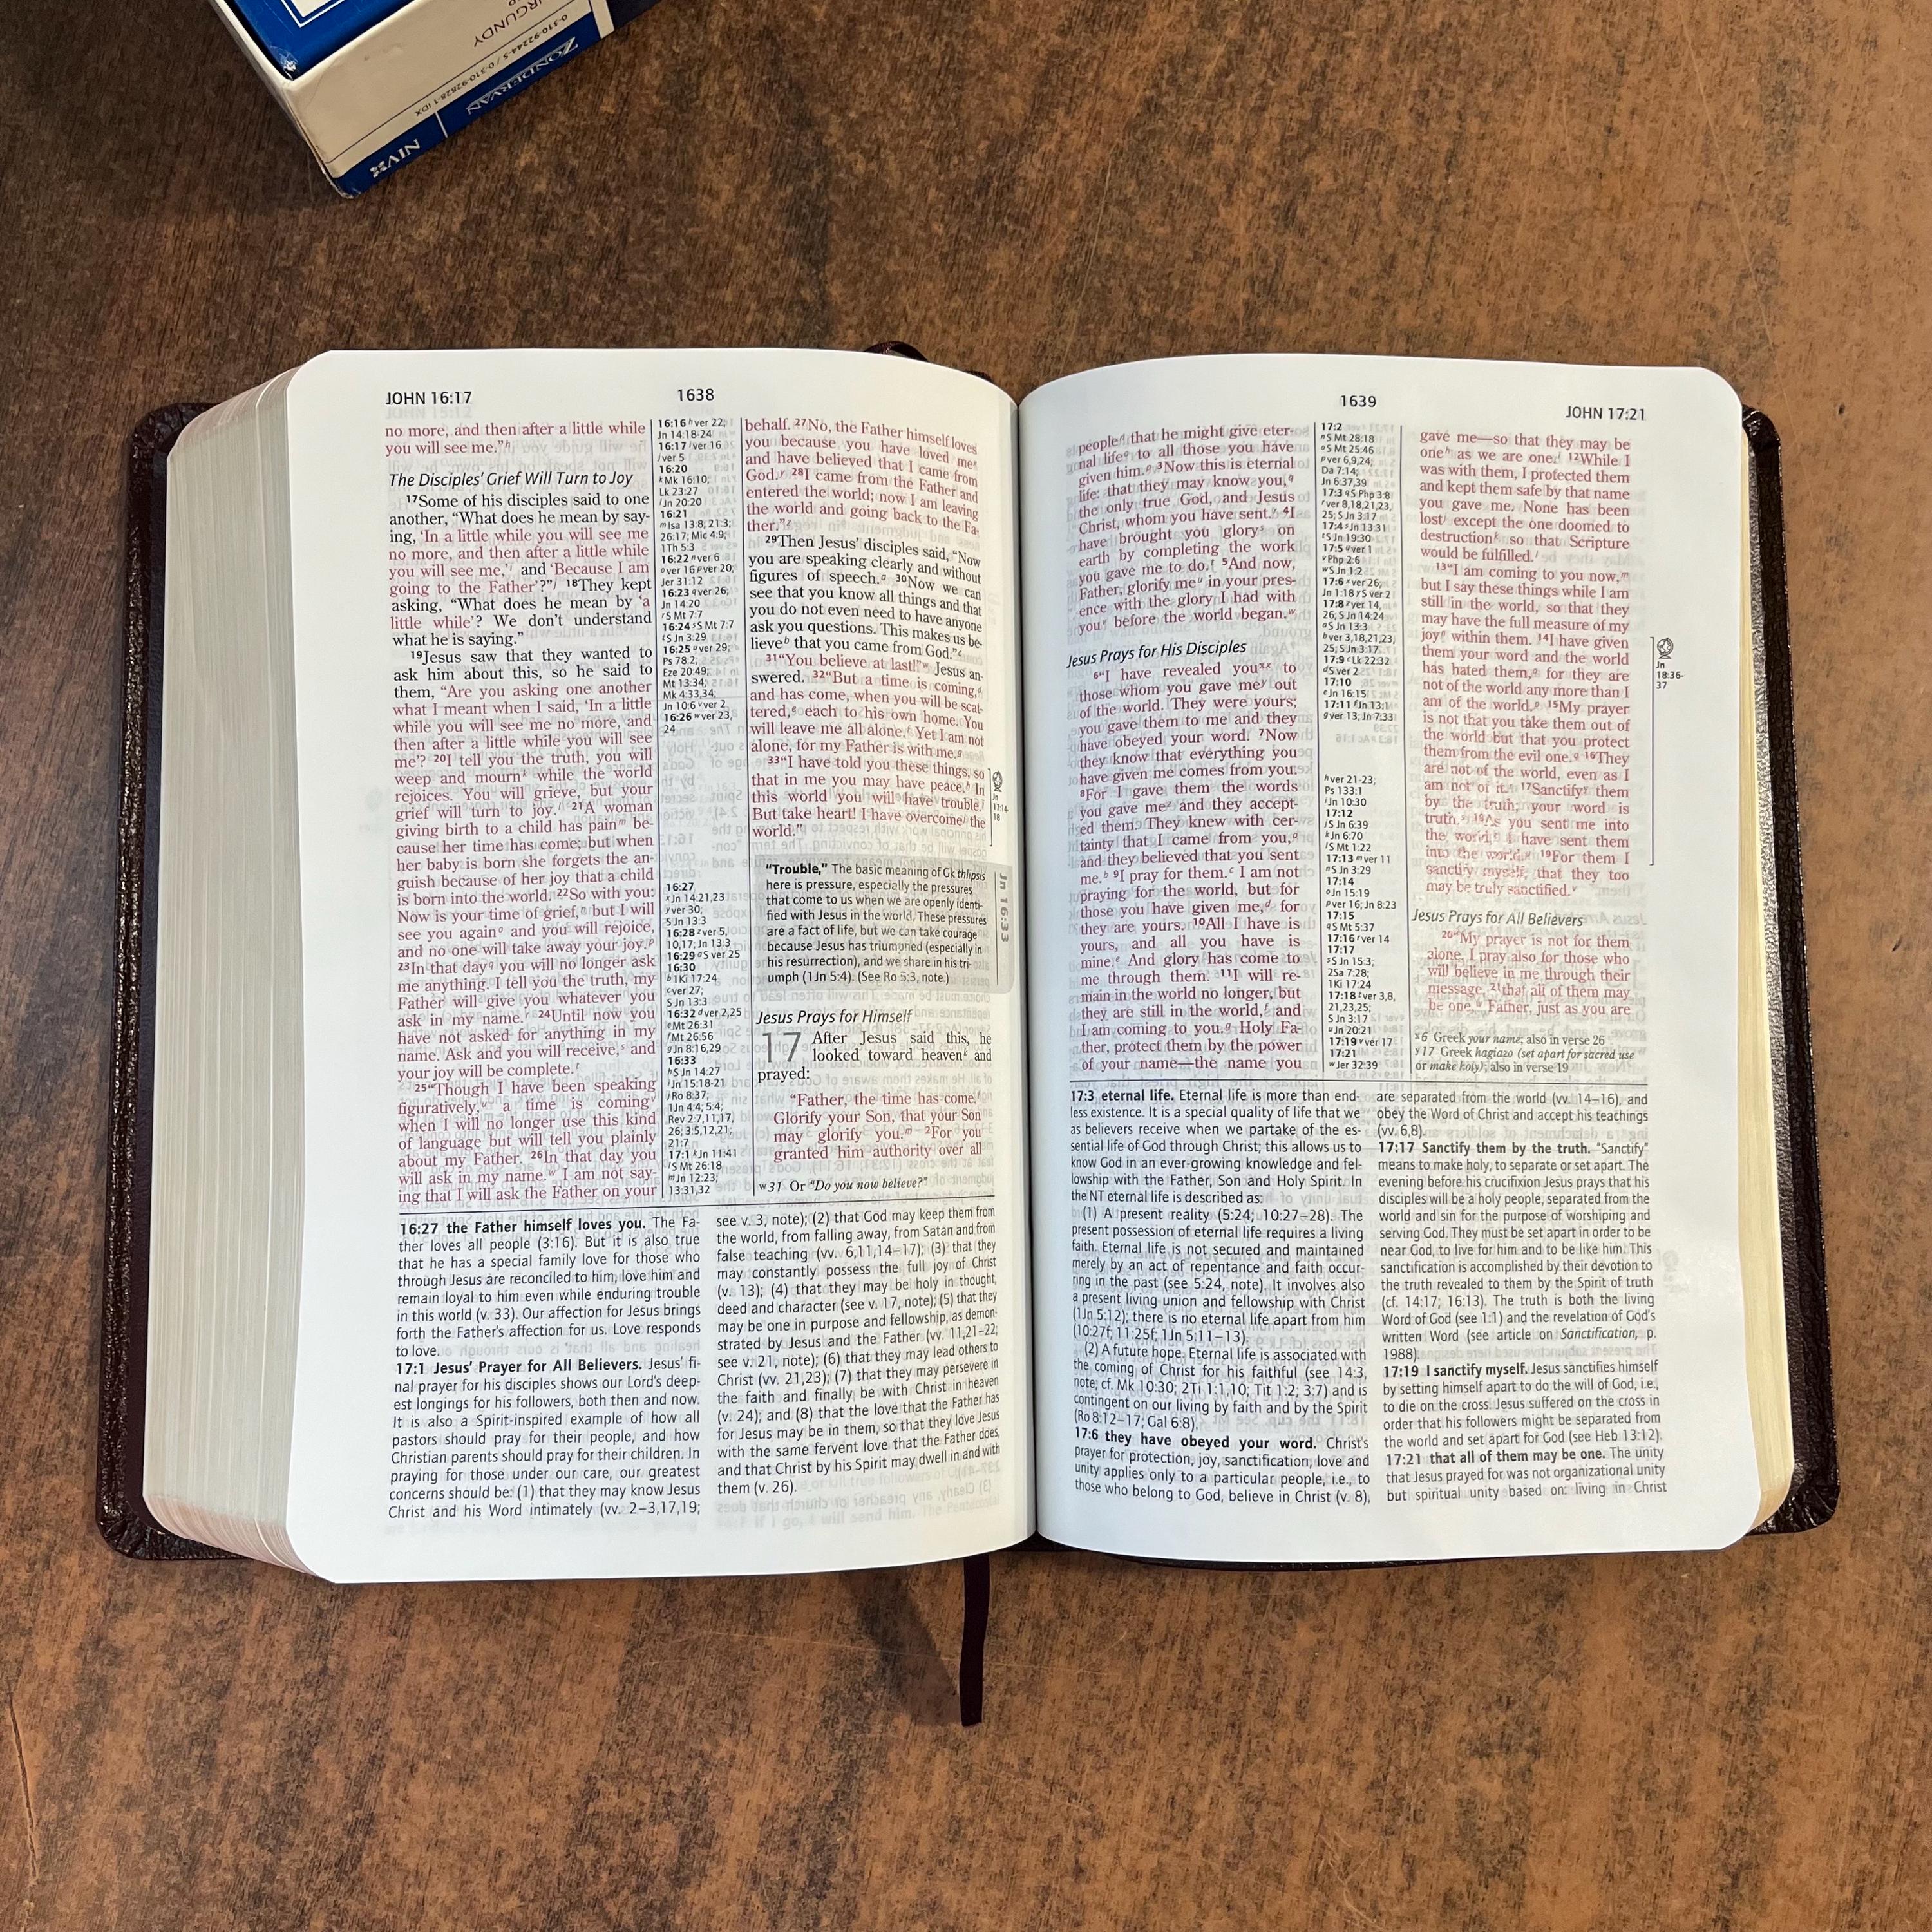 URGUNDY
0-310-92244-5 / 0-310-92828-1 IDX
ZONDERVAN
NIV
JOHN 16:17
1638
no more, and then after a little while
you will see me.”h
The Disciples’ Grief Will Turn to Joy
17Some of his disciples said to one
another, “What does he mean by say-
ing, ‘In a little while you will see me
no more, and then after a little while
you will see me,’i and ‘Because I am
going to the Father’?”j 18They kept
asking, “What does he mean by ‘a
little while’? We don’t understand
what he is saying.”
19Jesus saw that they wanted to
ask him about this, so he said to
them, “Are you asking one another
what I meant when I said, ‘In a little
while you will see me no more, and
then after a little while you will see
me’? 20I tell you the truth, you will
weep and mournk while the world
rejoices. You will grieve, but your
grief will turn to joy.l 21A woman
giving birth to a child has painm be-
cause her time has come; but when
her baby is born she forgets the an-
guish because of her joy that a child
is born into the world. 22So with you:
Now is your time of grief,n but I will
see you againo and you will rejoice,
and no one will take away your joy.p
23In that dayq you will no longer ask
me anything. I tell you the truth, my
Father will give you whatever you
ask in my name.r 24Until now you
have not asked for anything in my
name. Ask and you will receive,s and
your joy will be complete.t
25“Though I have been speaking
figuratively,u a time is comingv
when I will no longer use this kind
of language but will tell you plainly
about my Father. 26In that day you
will ask in my name.w I am not say-
ing that I will ask the Father on your
16:16 hver 22;
Jn 14:18-24
16:17 iver 16
jver 5
16:20
kMk 16:10;
Lk 23:27
lJn 20:20
16:21
mIsa 13:8; 21:3;
26:17; Mic 4:9;
1Th 5:3
16:22 nver 6
over 16 pver 20;
Jer 31:12
16:23 qver 26;
Jn 14:20
rS Mt 7:7
16:24 sS Mt 7:7
tS Jn 3:29
16:25 uver 29;
Ps 78:2;
Eze 20:49;
Mt 13:34;
Mk 4:33,34;
Jn 10:6 vver 2
16:26 wver 23,
24
16:27
xJn 14:21,23
yver 30;
S Jn 13:3
16:28 zver 5,
10,17; Jn 13:3
16:29 aS ver 25
16:30
b1Ki 17:24
cver 27;
S Jn 13:3
16:32 dver 2,25
eMt 26:31
fMt 26:56
gJn 8:16,29
16:33
hS Jn 14:27
iJn 15:18-21
jRo 8:37;
1Jn 4:4; 5:4;
Rev 2:7,11,17,
26; 3:5,12,21;
21:7
17:1 kJn 11:41
lS Mt 26:18
mJn 12:23;
13:31,32
behalf. 27No, the Father himself loves
you because you have loved mex
and have believed that I came from
God.y 28I came from the Father and
entered the world; now I am leaving
the world and going back to the Fa-
ther.”z
29Then Jesus’ disciples said, “Now
you are speaking clearly and without
figures of speech.a 30Now we can
see that you know all things and that
you do not even need to have anyone
ask you questions. This makes us be-
lieveb that you came from God.”c
31“You believe at last!”w Jesus an-
swered. 32“But a time is coming,d
and has come, when you will be scat-
tered,e each to his own home. You
will leave me all alone.f Yet I am not
alone, for my Father is with me.g
33“I have told you these things, so
that in me you may have peace.h In
this world you will have trouble.i
But take heart! I have overcomej the
world.”
Jn
17:14-
18
“Trouble,” The basic meaning of Gk thlipsis
here is pressure, especially the pressures
that come to us when we are openly identi-
fied with Jesus in the world. These pressures
are a fact of life, but we can take courage
because Jesus has triumphed (especially in
his resurrection), and we share in his tri-
umph (1Jn 5:4). (See Ro 5:3, note.)
Jn 16:33
Jesus Prays for Himself
17 After Jesus said this, he
looked toward heavenk and
prayed:
“Father, the time has come.l
Glorify your Son, that your Son
may glorify you.m 2For you
granted him authority over all
w31 Or “Do you now believe?”
16:27 the Father himself loves you. The Fa-
ther loves all people (3:16). But it is also true
that he has a special family love for those who
through Jesus are reconciled to him, love him and
remain loyal to him even while enduring trouble
in this world (v. 33). Our affection for Jesus brings
forth the Father’s affection for us. Love responds
to love.
17:1 Jesus’ Prayer for All Believers. Jesus’ fi-
nal prayer for his disciples shows our Lord’s deep-
est longings for his followers, both then and now.
It is also a Spirit-inspired example of how all
pastors should pray for their people, and how
Christian parents should pray for their children. In
praying for those under our care, our greatest
concerns should be: (1) that they may know Jesus
Christ and his Word intimately (vv. 2–3,17,19;
see v. 3, note); (2) that God may keep them from
the world, from falling away, from Satan and from
false teaching (vv. 6,11,14–17); (3) that they
may constantly possess the full joy of Christ
(v. 13); (4) that they may be holy in thought,
deed and character (see v. 17, note); (5) that they
may be one in purpose and fellowship, as demon-
strated by Jesus and the Father (vv. 11,21–22;
see v. 21, note); (6) that they may lead others to
Christ (vv. 21,23); (7) that they may persevere in
the faith and finally be with Christ in heaven
(v. 24); and (8) that the love that the Father has
for Jesus may be in them, so that they love Jesus
with the same fervent love that the Father does,
and that Christ by his Spirit may dwell in and with
them (v. 26).
1639
JOHN 17:21
peoplen that he might give eter-
nal lifeo to all those you have
given him.p 3Now this is eternal
life: that they may know you,q
the only true God, and Jesus
Christ, whom you have sent.r 4I
have brought you glorys on
earth by completing the work
you gave me to do.t 5And now,
Father, glorify meu in your pres-
ence with the glory I had with
youv before the world began.w
Jesus Prays for His Disciples
6“I have revealed youxx to
those whom you gave mey out
of the world. They were yours;
you gave them to me and they
have obeyed your word. 7Now
they know that everything you
have given me comes from you.
8For I gave them the words
you gave mez and they accept-
ed them. They knew with cer-
tainty that I came from you,a
and they believed that you sent
me.b 9I pray for them.c I am not
praying for the world, but for
those you have given me,d for
they are yours. 10All I have is
yours, and all you have is
mine.e And glory has come to
me through them. 11I will re-
main in the world no longer, but
they are still in the world,f and
I am coming to you.g Holy Fa-
ther, protect them by the power
of your name—the name you
17:2
nS Mt 28:18
oS Mt 25:46
pver 6,9,24;
Da 7:14;
Jn 6:37,39
17:3 qS Php 3:8
rver 8,18,21,23,
25; S Jn 3:17
17:4 sJn 13:31
tS Jn 19:30
17:5 uver 1
vPhp 2:6
wS Jn 1:2
17:6 xver 26;
Jn 1:18 yS ver 2
17:8 zver 14,
26; S Jn 14:24
aS Jn 13:3
bver 3,18,21,23,
25; S Jn 3:17
17:9 cLk 22:32
dS ver 2
17:10
eJn 16:15
17:11 fJn 13:1
gver 13; Jn 7:33
hver 21-23;
Ps 133:1
iJn 10:30
17:12
jS Jn 6:39
kJn 6:70
lS Mt 1:22
17:13 mver 11
nS Jn 3:29
17:14
oJn 15:19
pver 16; Jn 8:23
17:15
qS Mt 5:37
17:16 rver 14
17:17
sS Jn 15:3;
2Sa 7:28;
1Ki 17:24
17:18 tver 3,8,
21,23,25;
S Jn 3:17
uJn 20:21
17:19 vver 17
17:21
wJer 32:39
gave me—so that they may be
oneh as we are one.i 12While I
was with them, I protected them
and kept them safe by that name
you gave me. None has been
lostj except the one doomed to
destructionk so that Scripture
would be fulfilled.l
13“I am coming to you now,m
but I say these things while I am
still in the world, so that they
may have the full measure of my
joyn within them. 14I have given
them your word and the world
has hated them,o for they are
not of the world any more than I
am of the world.p 15My prayer
is not that you take them out of
the world but that you protect
them from the evil one.q 16They
are not of the world, even as I
am not of it.r 17Sanctifyy them
by the truth; your word is
truth.s 18As you sent me into
the world,t I have sent them
into the world.u 19For them I
sanctify myself, that they too
may be truly sanctified.v
Jn
18:36-
37
Jesus Prays for All Believers
20“My prayer is not for them
alone. I pray also for those who
will believe in me through their
message, 21that all of them may
be one,w Father, just as you are
x6 Greek your name; also in verse 26
y17 Greek hagiazo (set apart for sacred use
or make holy); also in verse 19
17:3 eternal life. Eternal life is more than end-
less existence. It is a special quality of life that we
as believers receive when we partake of the es-
sential life of God through Christ; this allows us to
know God in an ever-growing knowledge and fel-
lowship with the Father, Son and Holy Spirit. In
the NT eternal life is described as:
(1) A present reality (5:24; 10:27–28). The
present possession of eternal life requires a living
faith. Eternal life is not secured and maintained
merely by an act of repentance and faith occur-
ring in the past (see 5:24, note). It involves also
a present living union and fellowship with Christ
(1Jn 5:12); there is no eternal life apart from him
(10:27f; 11:25f; 1Jn 5:11–13).
(2) A future hope. Eternal life is associated with
the coming of Christ for his faithful (see 14:3,
note; cf. Mk 10:30; 2Ti 1:1,10; Tit 1:2; 3:7) and is
contingent on our living by faith and by the Spirit
(Ro 8:12–17; Gal 6:8).
17:6 they have obeyed your word. Christ’s
prayer for protection, joy, sanctification, love and
unity applies only to a particular people, i.e., to
those who belong to God, believe in Christ (v. 8),
are separated from the world (vv. 14–16), and
obey the Word of Christ and accept his teachings
(vv. 6,8).
17:17 Sanctify them by the truth. “Sanctify”
means to make holy, to separate or set apart. The
evening before his crucifixion Jesus prays that his
disciples will be a holy people, separated from the
world and sin for the purpose of worshiping and
serving God. They must be set apart in order to be
near God, to live for him and to be like him. This
sanctification is accomplished by their devotion to
the truth revealed to them by the Spirit of truth
(cf. 14:17; 16:13). The truth is both the living
Word of God (see 1:1) and the revelation of God’s
written Word (see article on Sanctification, p.
1988).
17:19 I sanctify myself. Jesus sanctifies himself
by setting himself apart to do the will of God, i.e.,
to die on the cross. Jesus suffered on the cross in
order that his followers might be separated from
the world and set apart for God (see Heb 13:12).
17:21 that all of them may be one. The unity
that Jesus prayed for was not organizational unity
but spiritual unity based on: living in Christ